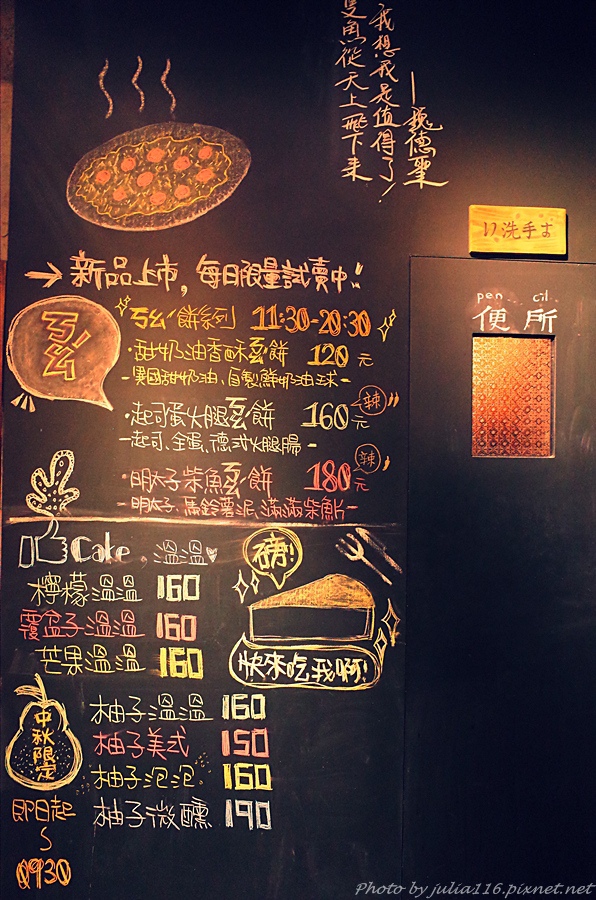 我想我是值得了！
隻魚從天上飛下來
い洗手さ
pen cil
便所
→新品上市，每日限量試賣中!!
ㄎㄠˊ
ㄎㄠˊ餅系列 11:30-20:30
·甜奶油香酥ㄎㄠˊ餅 120元
-異國甜奶油、自製鮮奶油球-
·起司蛋火腿ㄎㄠˊ餅 160元 辣
-起司、全蛋、德式火腿腸-
·明太子柴魚ㄎㄠˊ餅 180元 辣
-明太子、馬鈴薯泥、滿滿柴魚片-
Cake，溫溫
檸檬溫溫 160
覆盆子溫溫 160
芒果溫溫 160
磅!
快來吃我啊!
中秋限定
即日起
~
0930
柚子溫溫 160
柚子美式 150
柚子泡泡 160
柚子微醺 190
Photo by julia116.pixnet.net